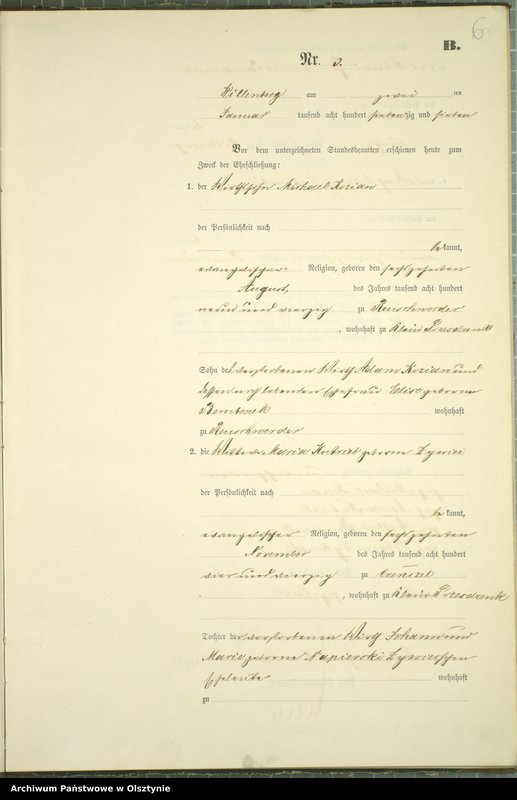 6
B.
Nr. 3.
Willenberg am zwei ten
Januar tausend acht hundert siebenzig und sieben
Vor dem unterzeichneten Standesbeamten erschienen heute zum
Zweck der Eheschließung:
1. der Wirthssohn Michael Kozian
der Persönlichkeit nach
be kannt,
evangelischer Religion, geboren den sechszehnten
August des Jahres tausend acht hundert
neun und vierzig zu Reuschwerder
, wohnhaft zu Klein Przesdzenk
Sohn des verstorbenen Wirth Adam Kozian und
dessen noch lebenden Ehefrau Elise geborne
wohnhaft
zu Reuschwerder
2. die Wittwe Maria geborne
der Persönlichkeit nach
be kannt,
evangelischer Religion, geboren den sechszehnten
November des Jahres tausend acht hundert
vier und vierzig zu
, wohnhaft zu Klein Przesdzenk
Tochter der verstorbenen Wirth Johann und
Marie geborne Napierski
Eheleute wohnhaft
zu
Archiwum Państwowe w Olsztynie